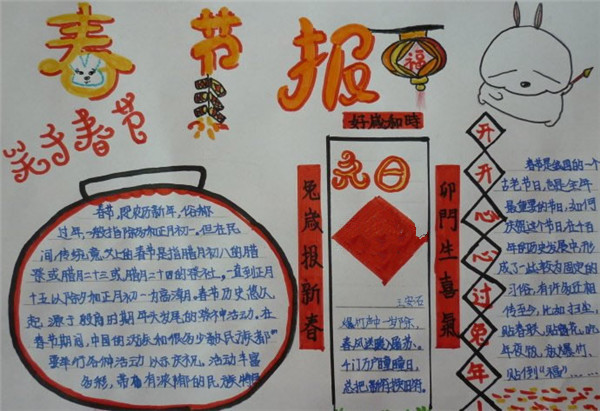 春节报
福
关于春节
春节，是农历新年，俗称
过年，一般指除夕和正月初一。但在民
间传统意义上的春节是指腊月初八的腊
祭或腊月二十三或腊月二十四的祭社。一直到正月
十五，以除夕和正月初一为高潮。春节历史悠久
起源于殷商时期年头岁尾的祭神活动。在
春节期间，中国的汉族和很多少数民族都
要举行各种活动以示庆祝。活动丰富
多彩，带着有浓郁的民族特
好歲和時
兔歲报新春
卯門生喜氣
元日
王安石
爆竹声中一岁除，
春风送暖入屠苏。
千门万户曈曈日，
总把新符换旧符。
开开心心过兔年
春节是我国的一个
古老节日，也是全年
最重要的节日，如何
庆祝这个节日，在千百
年的历史发展中，形
成了一些较为固定的
习俗，有许多还相
传至今，比如扫尘，
贴春联，贴窗花，吃
年夜饭，放爆竹，
贴倒“福”……